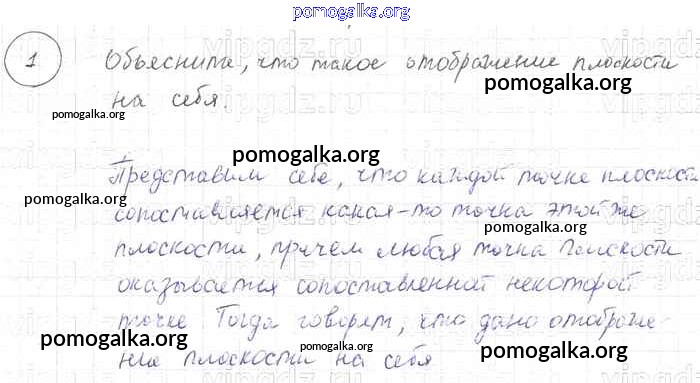 pomogalka.org
1 Объясните, что такое отображение плоскости
pomogalka.org
на себя.
pomogalka.org
pomogalka.org
Представим себе, что каждой точке плоскости
pomogalka.org
сопоставляется какая-то точка этой же
pomogalka.org
плоскости, причем любая точка плоскости
оказывается сопоставленной некоторой
точке Тогда говорят, что дано отображе-
pomogalka.org
pomogalka.org
ние плоскости на себя